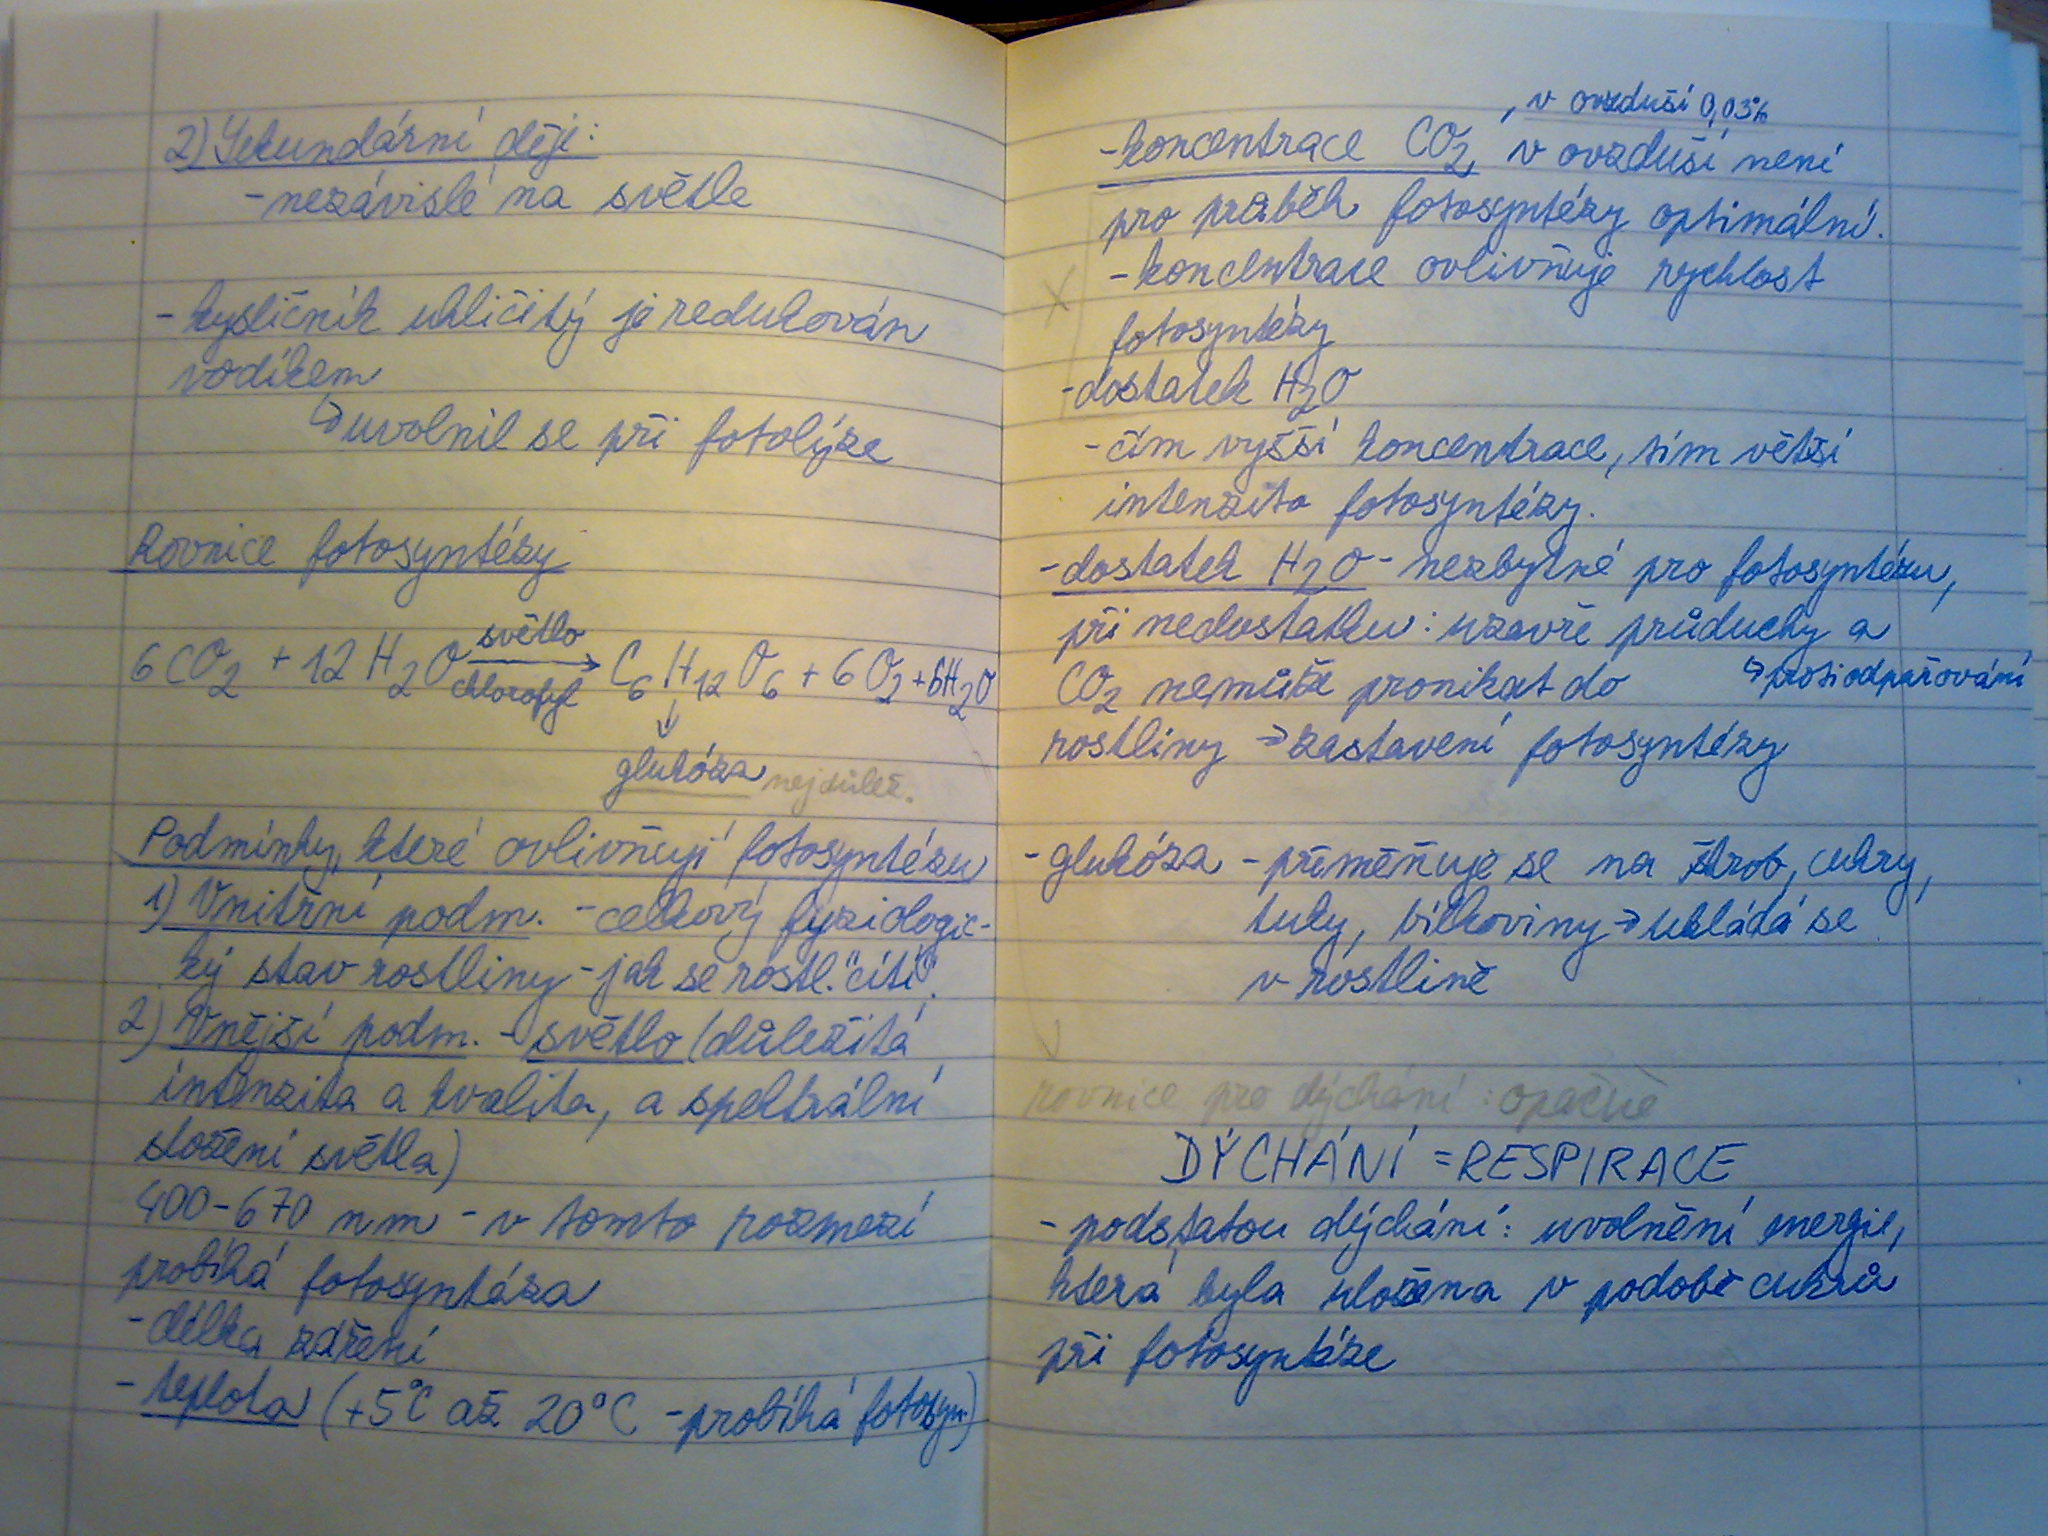 2) Sekundární děje:
- nezávislé na světle
- kysličník uhličitý je redukován
vodíkem
↳ uvolnil se při fotolýze
Rovnice fotosyntézy
světlo
6CO₂ + 12H₂O → C₆H₁₂O₆ + 6O₂ + 6H₂O
chlorofyl
↓
glukóza nejdůlež.
Podmínky, které ovlivňují fotosyntézu
1) Vnitřní podm. - celkový fyziologic-
ký stav rostliny - jak se rostl. "cítí".
2) Vnější podm. - světlo (důležitá
intenzita a kvalita, a spektrální
složení světla)
400-670 nm - v tomto rozmezí
probíhá fotosyntéza
- délka záření
- teplota (+5°C až 20°C - probíhá fotosyn.)
, v ovzduší 0,03%
- koncentrace CO₂ v ovzduší není
pro průběh fotosyntézy optimální.
- koncentrace ovlivňuje rychlost
fotosyntézy
- dostatek H₂O
- čím vyšší koncentrace, tím větší
intenzita fotosyntézy.
- dostatek H₂O - nezbytné pro fotosyntézu,
při nedostatku: uzavře průduchy a
↳ proti odpařování
CO₂ nemůže pronikat do
rostliny → zastavení fotosyntézy
- glukóza - přiměňuje se na škrob, cukry,
tuky, bílkoviny → ukládá se
v rostlině
rovnice pro dýchání: opačně
DÝCHÁNÍ = RESPIRACE
- podstatou dýchání: uvolnění energie,
která byla uložena v podobě cukrů
při fotosyntéze